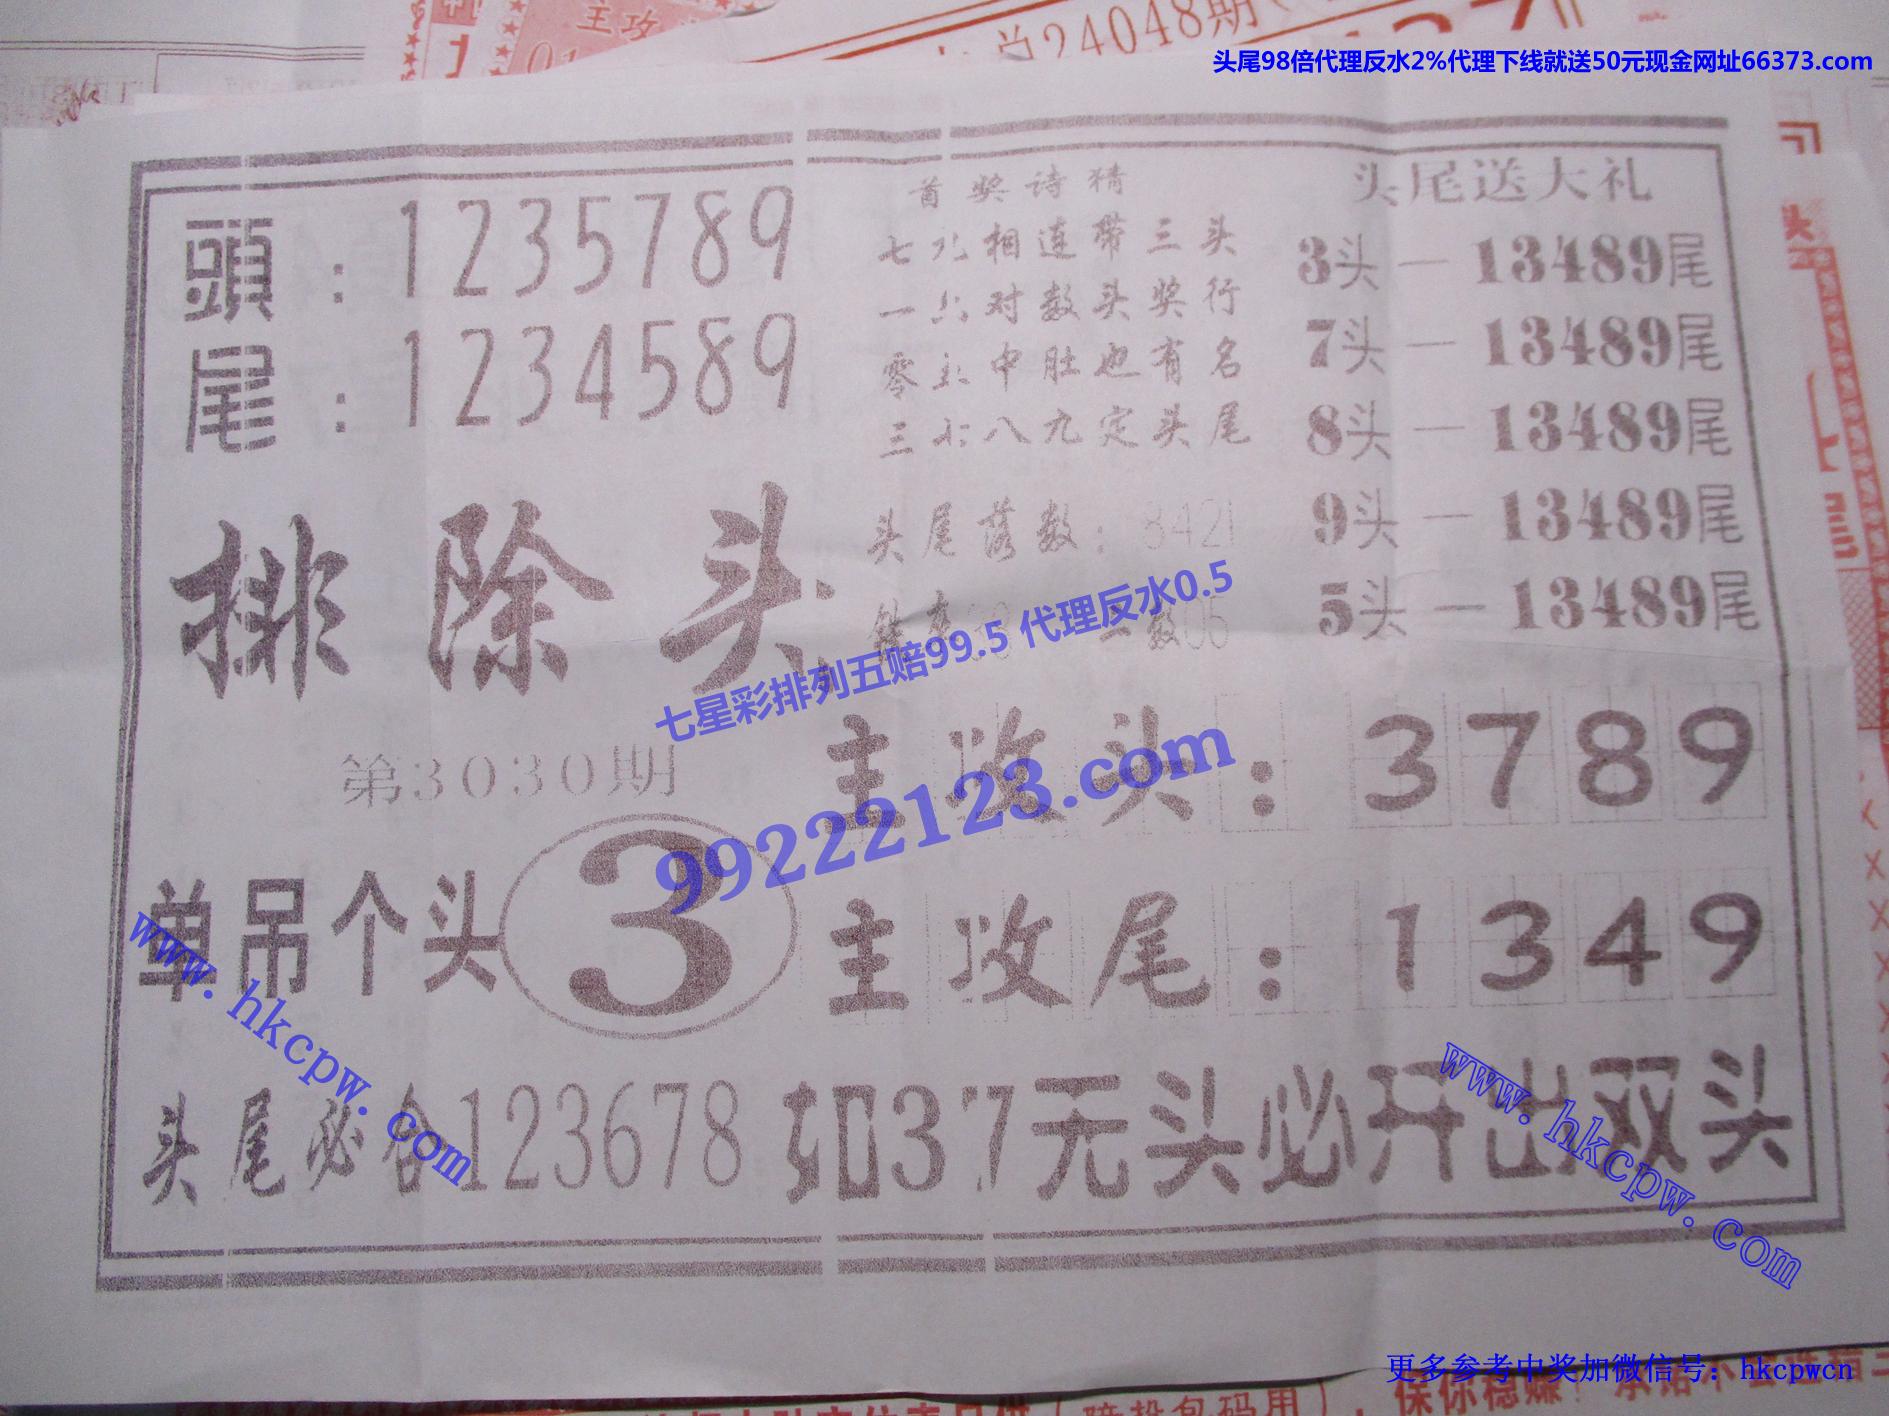 主攻
01
24048期
头尾98倍代理反水2%代理下线就送50元现金网址66373.com
頭：1235789
尾：1234589
首奖诗猜
七九相连带三头
一六对数头奖行
零五中肚也有名
三七八九定头尾
头尾落数：8421
二数05
头尾送大礼
3头—13489尾
7头—13489尾
8头—13489尾
9头—13489尾
5头—13489尾
排除头
七星彩排列五赔99.5 代理反水0.5
99222123.com
第3030期
单吊个头3
主攻头：3789
主攻尾：1349
头尾必合123678 如3.7无头必开出双头
www.hkcpw.com
www.hkcpw.com
更多参考中奖加微信号：hkcpwcn
保你稳赚